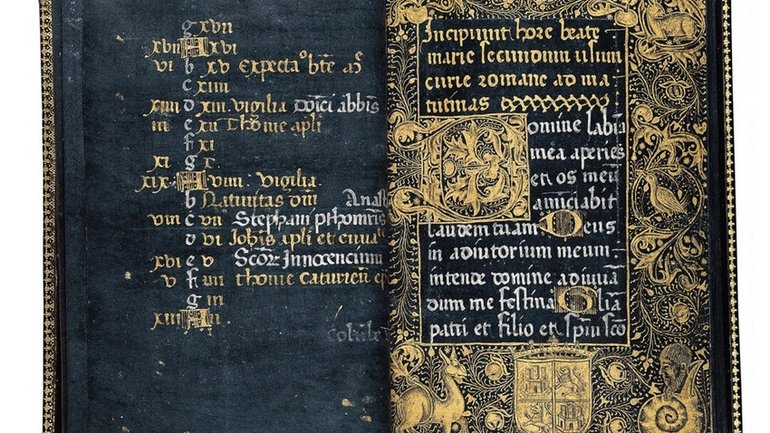 g xvii
xvii A xvi
vi b xv Expectaº bte
c xiiii
xiiii d xiii vigilia
iii e xii Thome apli
f xi
xi g x
xix A viiii vigilia
b Nativitas
viii c vii Stephani
d vi Iohis apli et
xvi e v Scõr Innocencium
v f iiii thome
g iii
xiii A
Incipiunt hore beate
marie secundum usum
curie romane ad ma
tutinas
Domine labia
mea aperies
et os meũ
anũciabit
laudem tuam Deus
in adiutorium meum
intende domine adiuuã
dum me festina Glia
patri et filio et spiui scõ